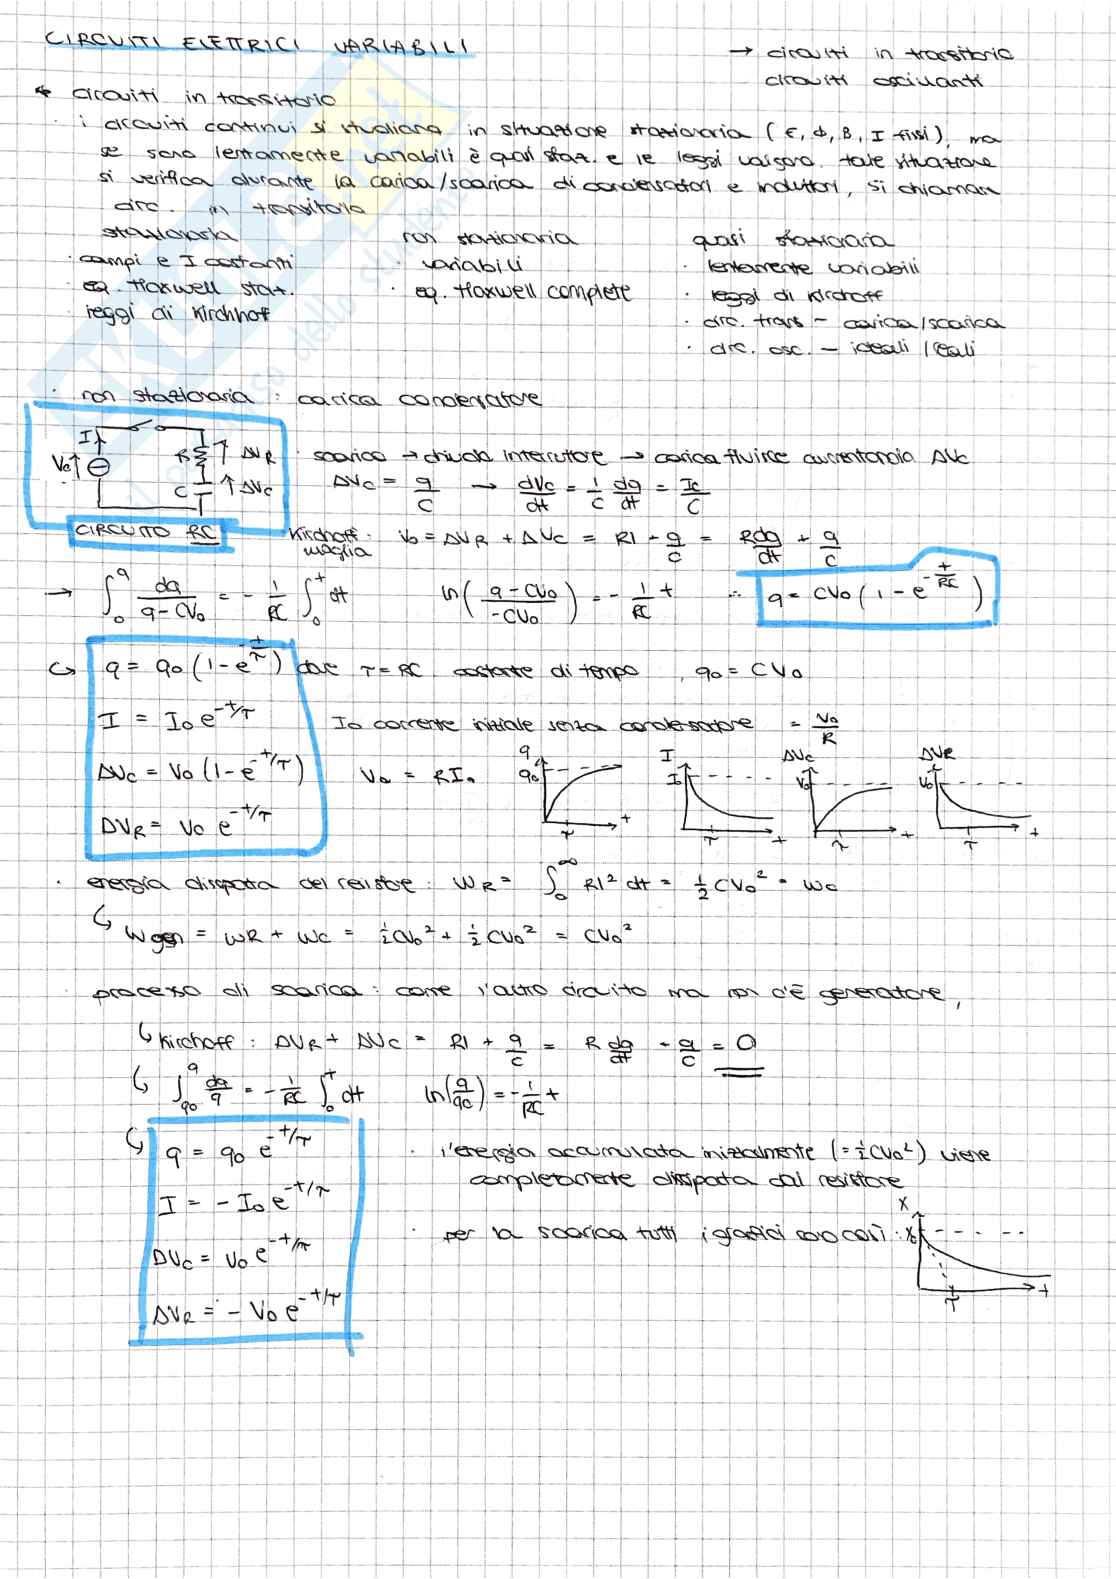 CIRCUITI ELETTRICI VARIABILI
→ circuiti in transitorio
circuiti oscillanti
* circuiti in transitorio
· i circuiti continui si studiano in situazione stazionaria (E, ϕ, B, I fissi), ma
se sono lentamente variabili è quasi staz. e le leggi valgono. tale situazione
si verifica durante la carica/scarica di condensatori e induttori, si chiamano
circ. in transitorio
stazionaria
· campi e I costanti
· eq. Maxwell stat.
· leggi di Kirchhof
non stazionaria
· variabili
· eq. Maxwell complete
quasi stazionaria
· lentamente variabili
· leggi di Kirchoff
· circ. trans – carica/scarica
· circ. osc. – ideali/reali
· non stazionaria : carica condensatore
I
V₀ ↑
R ↑ ΔVR
C ↑ ΔVC
CIRCUITO RC
· scarico → chiudo interruttore → carica fluisce aumentando ΔVC
ΔVC = q/C → dVC/dt = 1/C dq/dt = IC/C
Kirchoff maglia : V₀ = ΔVR + ΔVC = RI - q/C = R dq/dt + q/C
→ ∫₀^q dq/(q - CV₀) = - 1/RC ∫₀^t dt ln((q - CV₀)/(-CV₀)) = - 1/RC t ∴ q = CV₀(1 - e^(-t/RC))
↪ q = q₀(1 - e^(-t/τ)) dove τ = RC costante di tempo, q₀ = CV₀
I = I₀ e^(-t/τ) I₀ corrente iniziale senza condensatore = V₀/R
ΔVC = V₀(1 - e^(-t/τ)) V₀ = RI₀
ΔVR = V₀ e^(-t/τ)
q q₀ τ t
I I₀ τ t
ΔVC V₀ τ t
ΔVR V₀ τ t
· energia dissipata dal resistore : WR = ∫₀^∞ RI² dt = ½ CV₀² = WC
↳ Wgen = WR + WC = ½CV₀² + ½CV₀² = CV₀²
· processo di scarica : come l'altro circuito ma non c'è generatore,
↳ Kirchoff : ΔVR + ΔVC = RI + q/C = R dq/dt - q/C = 0
↳ ∫q₀^q dq/q = - 1/RC ∫₀^t dt ln(q/q₀) = - 1/RC t
↳ q = q₀ e^(-t/τ)
I = - I₀ e^(-t/τ)
ΔVC = V₀ e^(-t/τ)
ΔVR = - V₀ e^(-t/τ)
· l'energia accumulata inizialmente (= ½CV₀²) viene
completamente dissipata dal resistore
· per la scarica tutti i grafici sono così :
X X₀ τ t